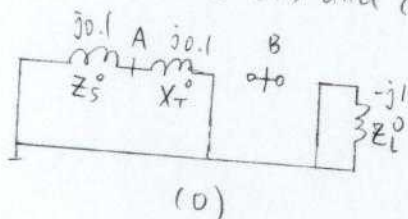 and
j0.1 A j0.1 B
Z_S^0 X_T^0
-j1
Z_L^0
(0)